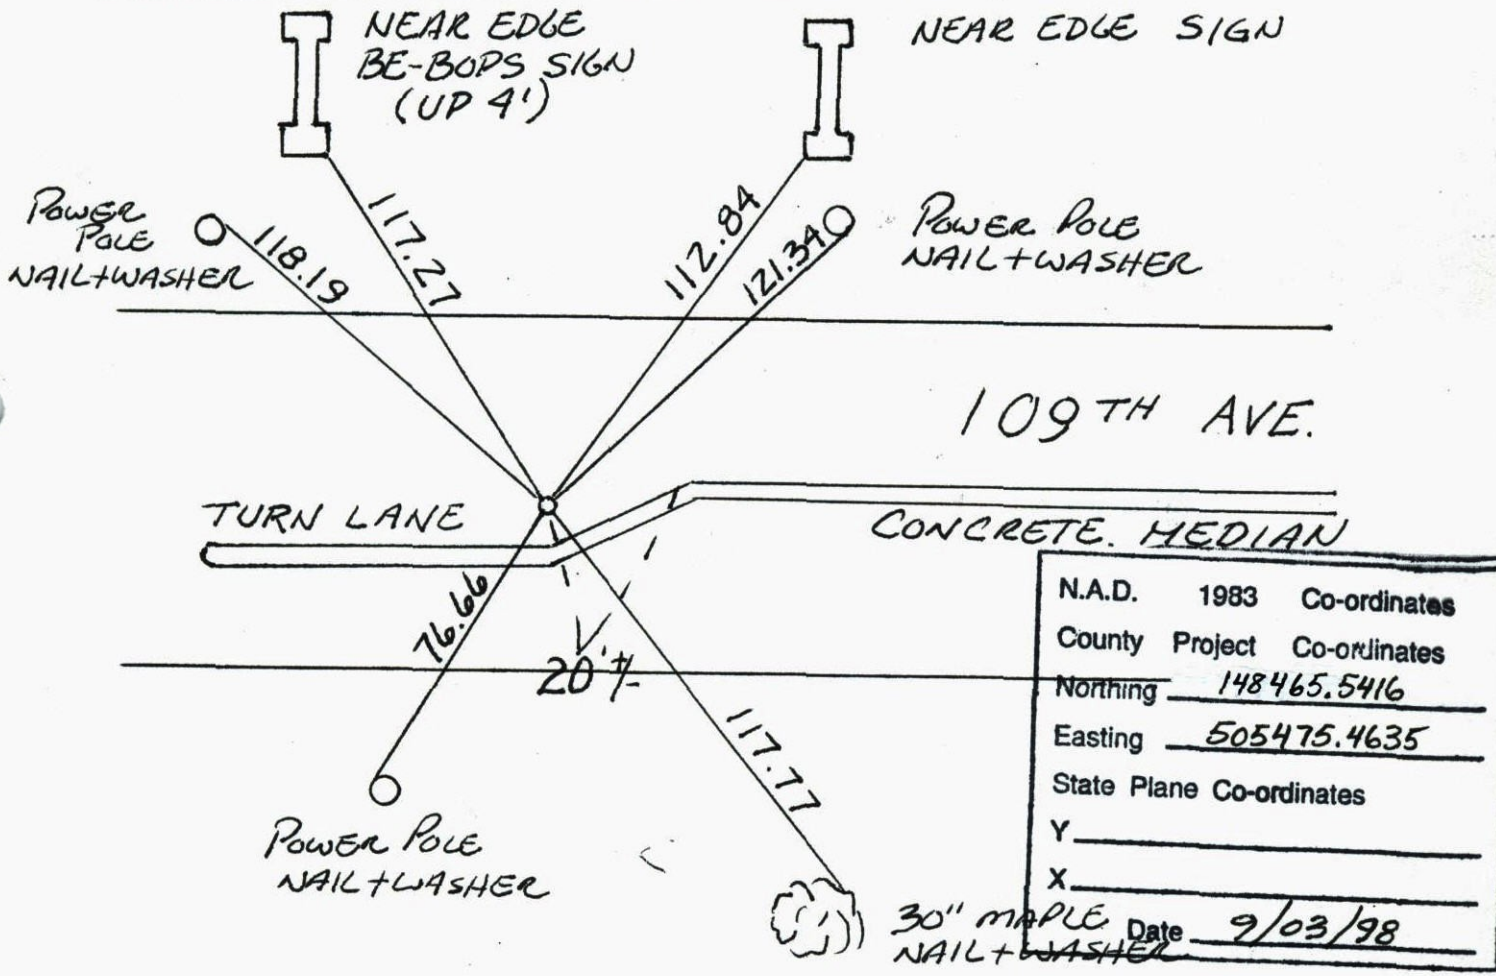 NEAR EDGE
BE-BOPS SIGN
(UP 4')
NEAR EDGE SIGN
POWER
POLE
NAIL+WASHER
118.19
117.27
112.84
121.34
POWER POLE
NAIL+WASHER
109TH AVE.
TURN LANE
CONCRETE. MEDIAN
76.66
20' +/-
117.77
POWER POLE
NAIL+WASHER
30" MAPLE
NAIL+WASHER
N.A.D. 1983 Co-ordinates
County Project Co-ordinates
Northing 148465.5416
Easting 505475.4635
State Plane Co-ordinates
Y
X
Date 9/03/98